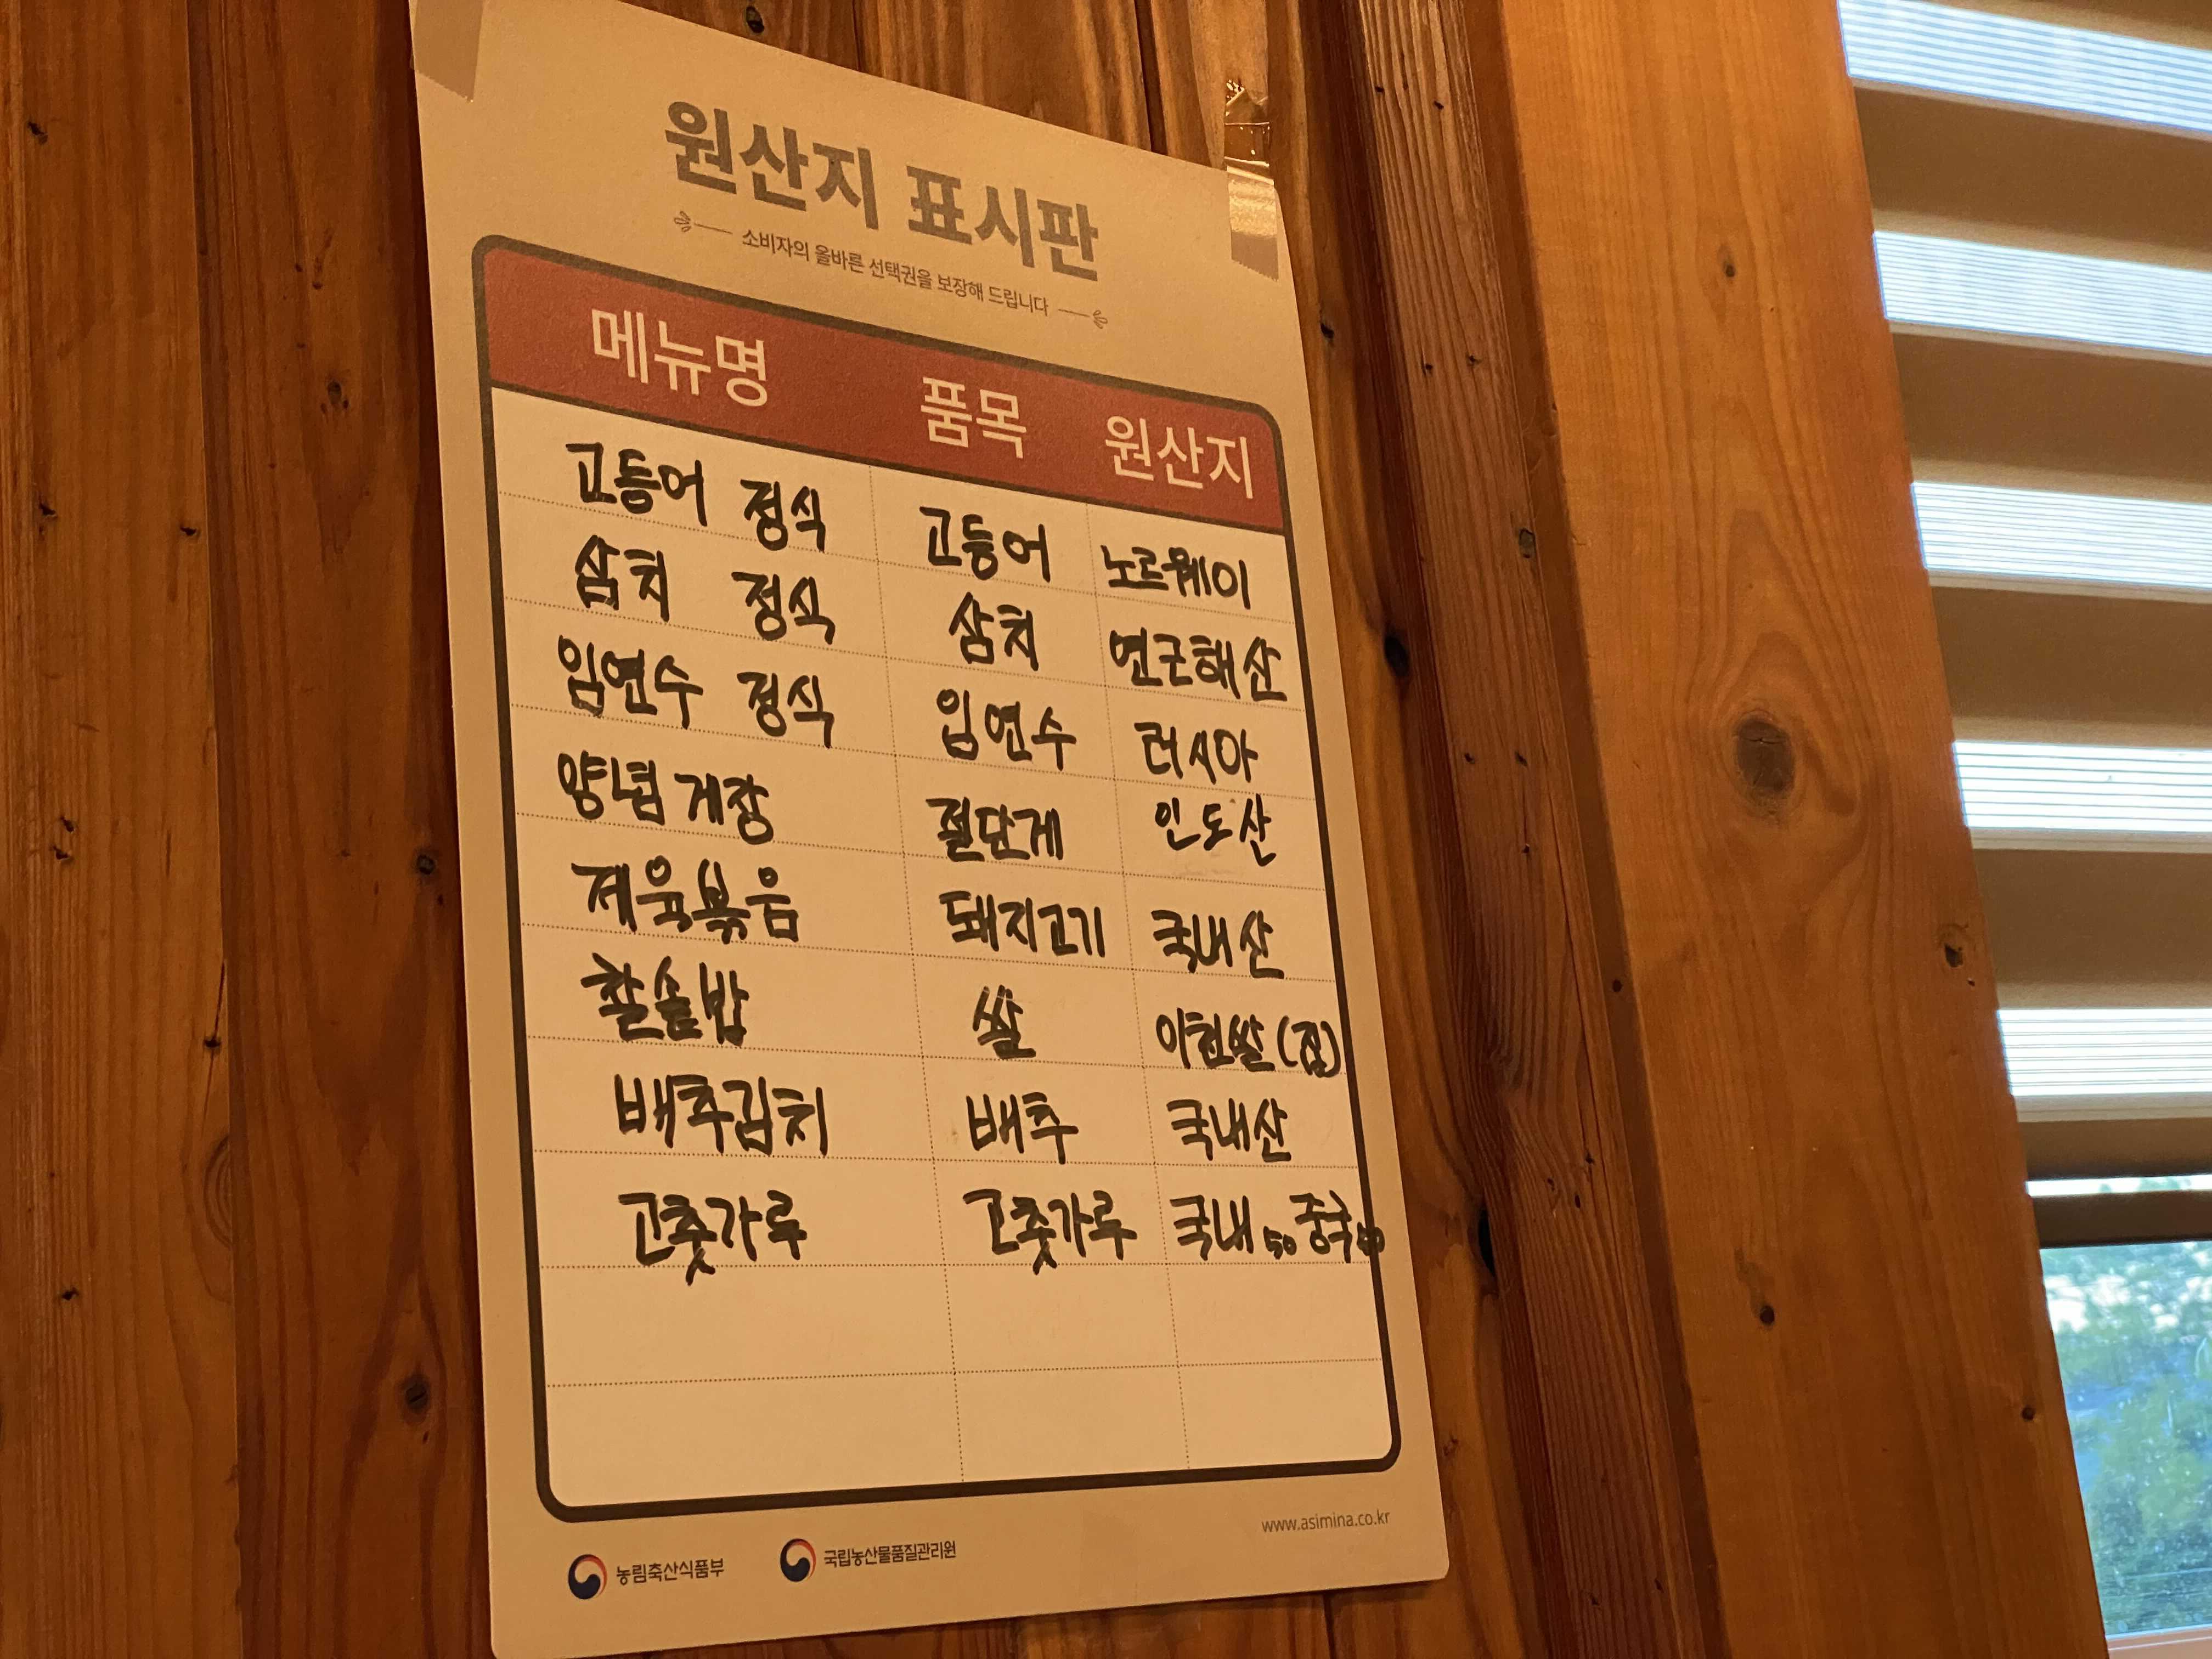 원산지 표시판
소비자의 올바른 선택권을 보장해 드립니다
메뉴명 품목 원산지
고등어 정식 고등어 노르웨이
삼치 정식 삼치 연근해산
임연수 정식 임연수 러시아
양념게장 절단게 인도산
제육볶음 돼지고기 국내산
찰솥밥 쌀 이천쌀
배추김치 배추 국내산
고춧가루 고춧가루 국내50 중국50
www.asimina.co.kr
농림축산식품부 국립농산물품질관리원